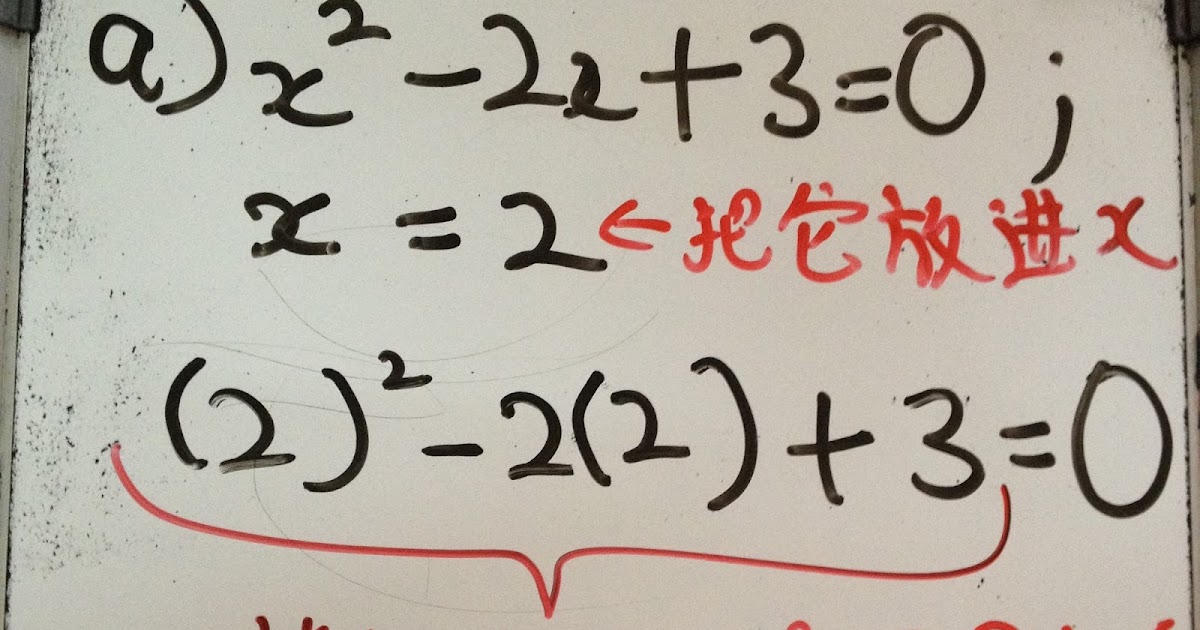 a) x² - 2x + 3 = 0 ;
x = 2 ← 把它放进 x
(2)² - 2(2) + 3 = 0